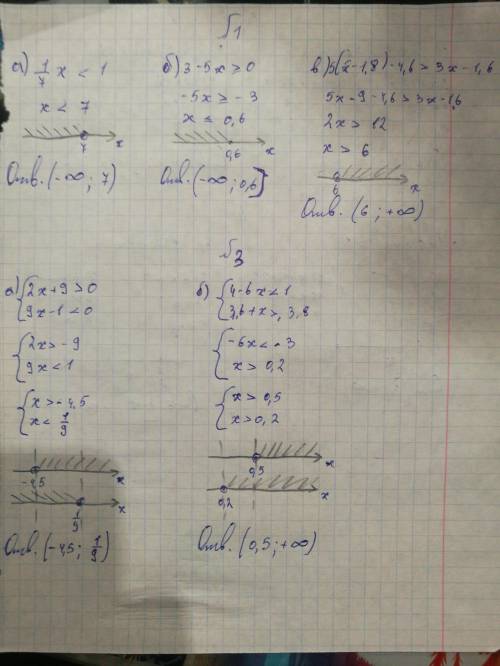 №1
а) 1/7 x < 1
x < 7
7 x
Отв. (-∞; 7)
б) 3-5x ≥ 0
-5x ≥ -3
x ≤ 0,6
0,6 x
Отв. (-∞; 0,6]
в) 5(x-1,8)-4,6 > 3x-1,6
5x-9-4,6 > 3x-1,6
2x > 12
x > 6
6 x
Отв. (6; +∞)
№3
а) {2x+9 > 0
9x-1 < 0
{2x > -9
9x < 1
{x > -4,5
x < 1/9
-4,5 x
1/9 x
Отв. (-4,5; 1/9)
б) {4-6x < 1
3,6+x > 3,8
{-6x < -3
x > 0,2
{x > 0,5
x > 0,2
0,5 x
0,2 x
Отв. (0,5; +∞)